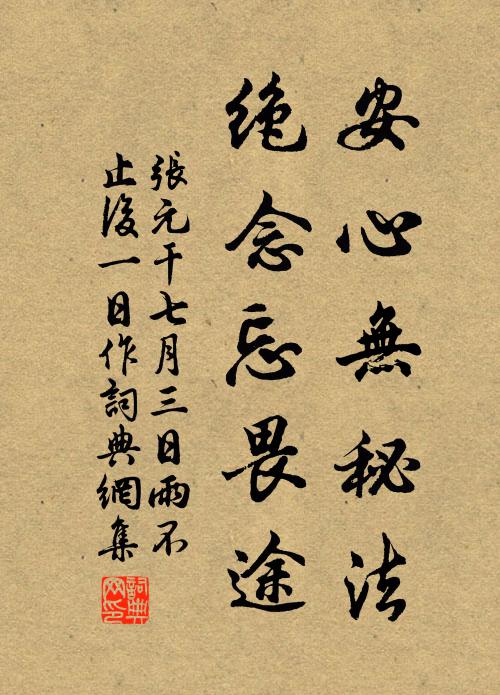 安心無秘法
絶念忘畏途
張元干七月三日雨不
止後一日作詞典網集
詞典網印